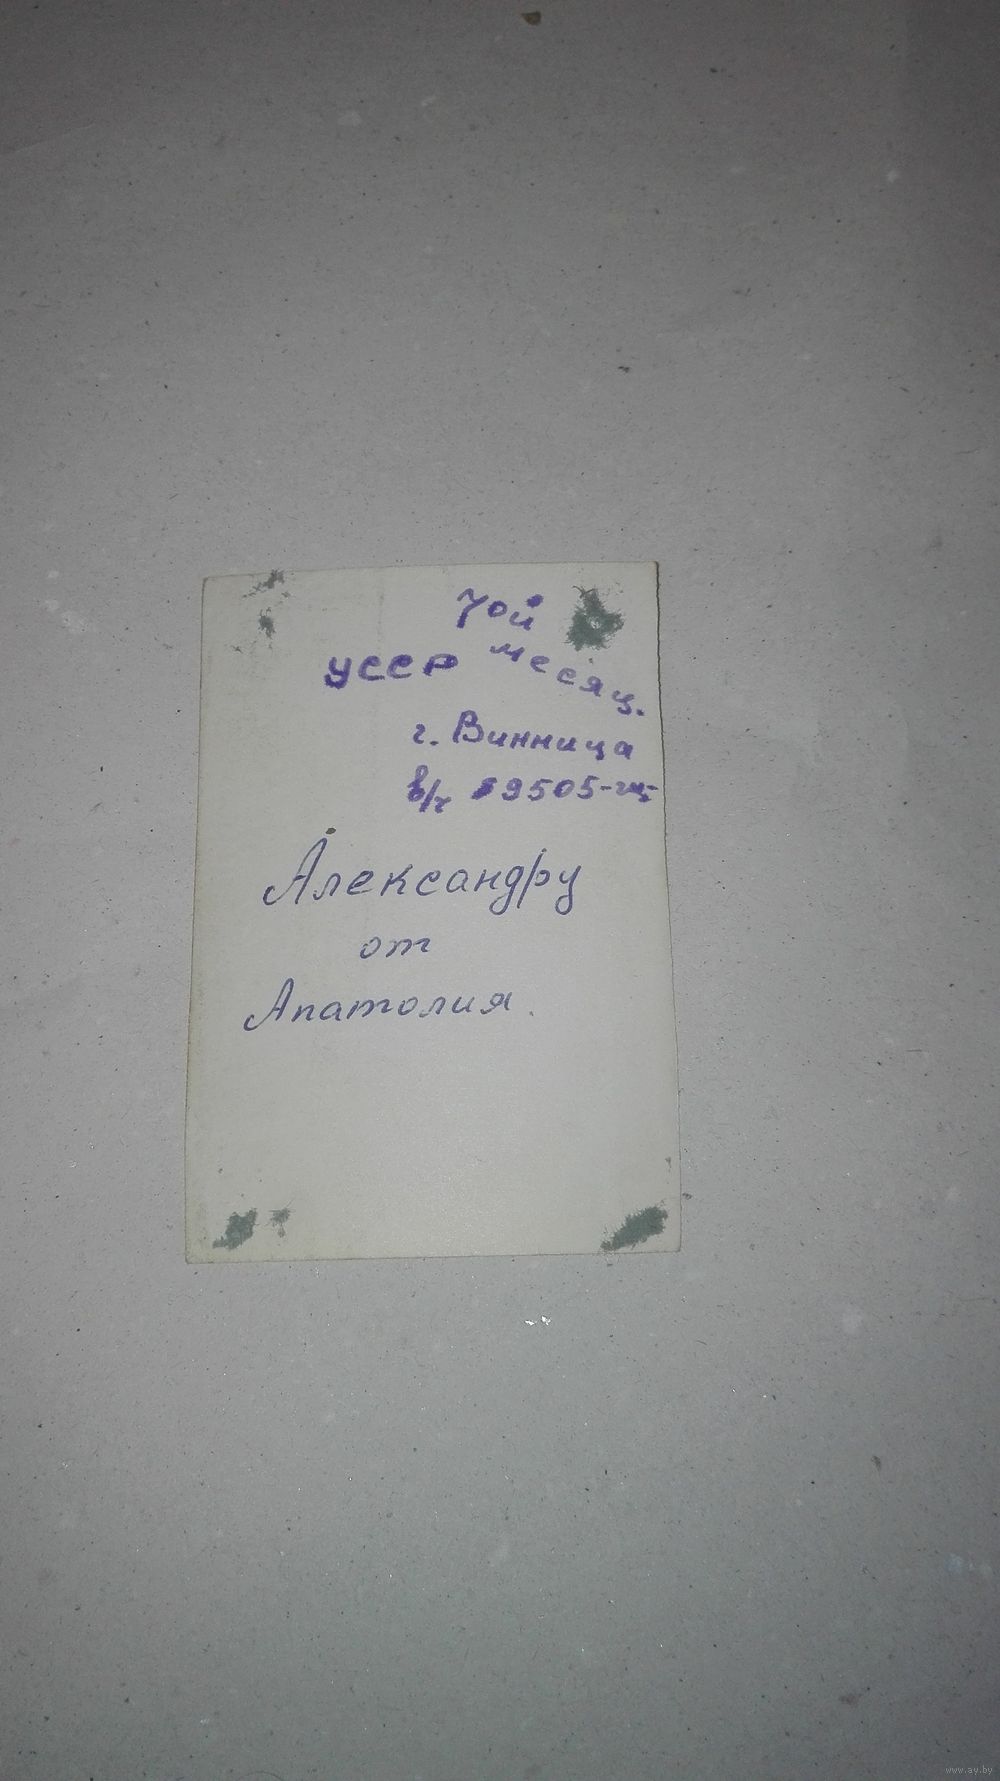 7ой
месяц.
УССР
г. Винница
в/ч 19505-"Щ"
Александру
от
Анатолия.
www.ay.by